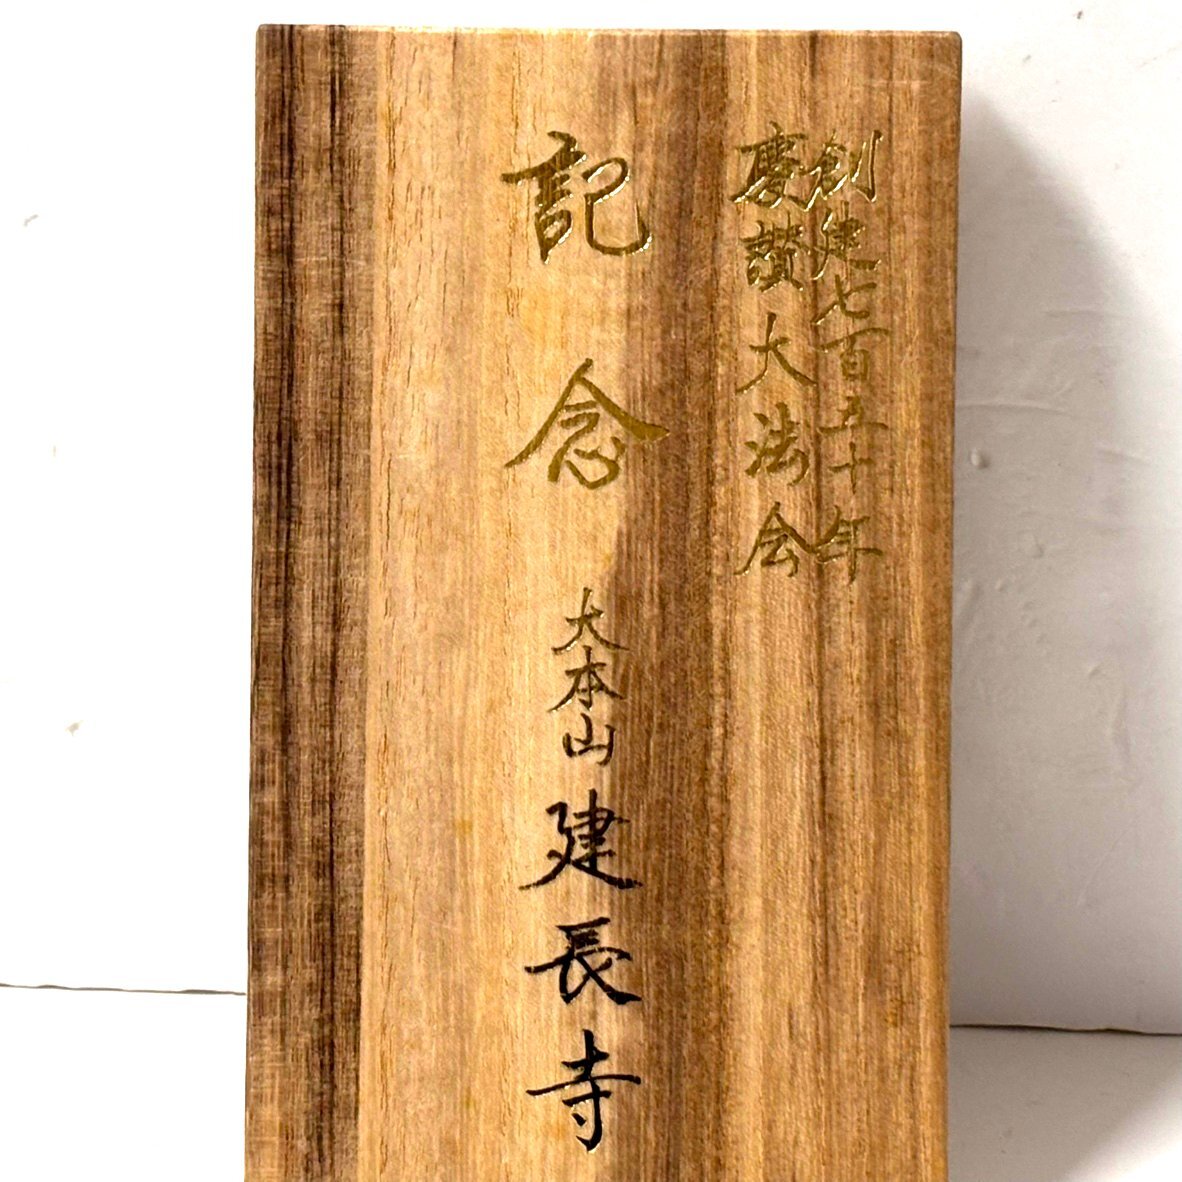 創建七百五十年
慶讃大法会
記念
大本山建長寺